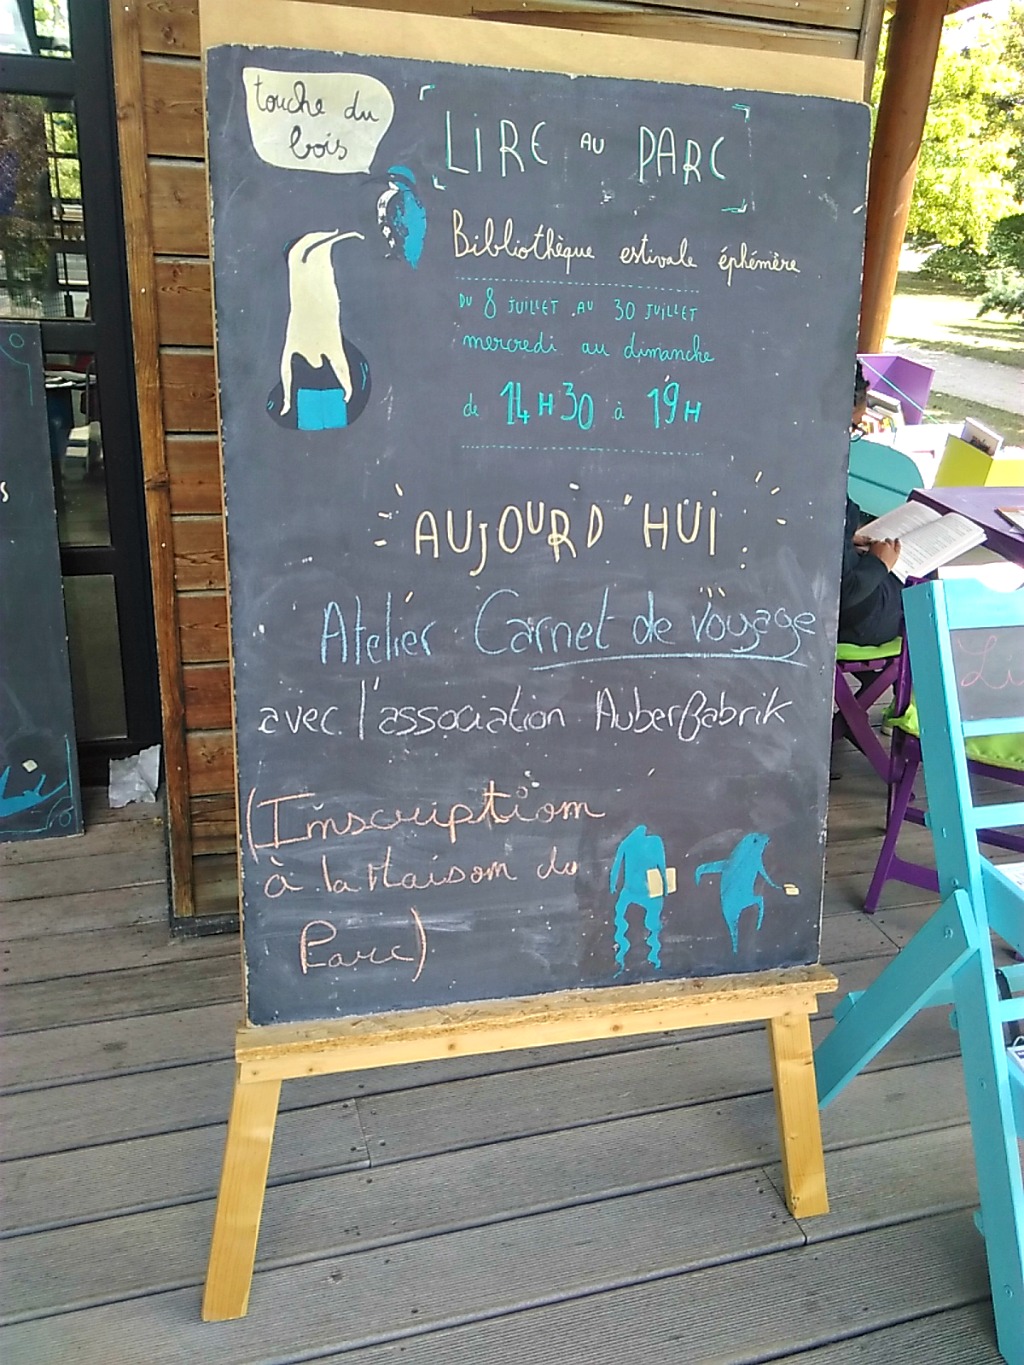 touche du
bois
LIRE AU PARC
Bibliothèque estivale éphémère
DU 8 JUILLET AU 30 JUILLET
mercredi au dimanche
de 14H30 à 19H
AUJOURD'HUI
Atelier Carnet de voyage
avec l'association Auberfabrik
(Inscription
à la Maison du
Parc)